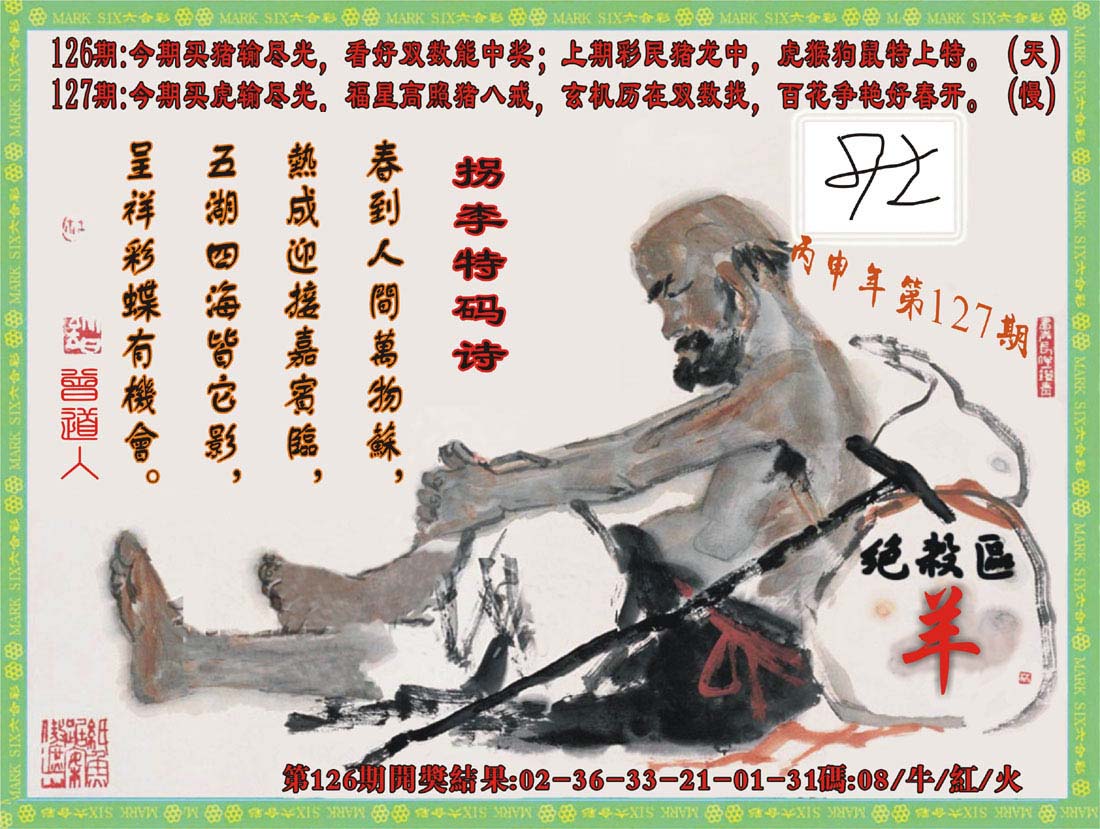 MARK SIX六合彩
126期:今期买猪输尽光，看好双数能中奖；上期彩民猪龙中，虎猴狗鼠特上特。(天)
127期:今期买虎输尽光．福星高照猪八戒，玄机历在双数找，百花争艳好春开。(慢)
丙申年第127期
拐李特码诗
春到人間萬物蘇，
熱成迎接嘉賓臨，
五湖四海皆它影，
呈祥彩蝶有機會。
曾道人
绝殺區
羊
第126期開獎結果:02-36-33-21-01-31碼:08/牛/紅/火